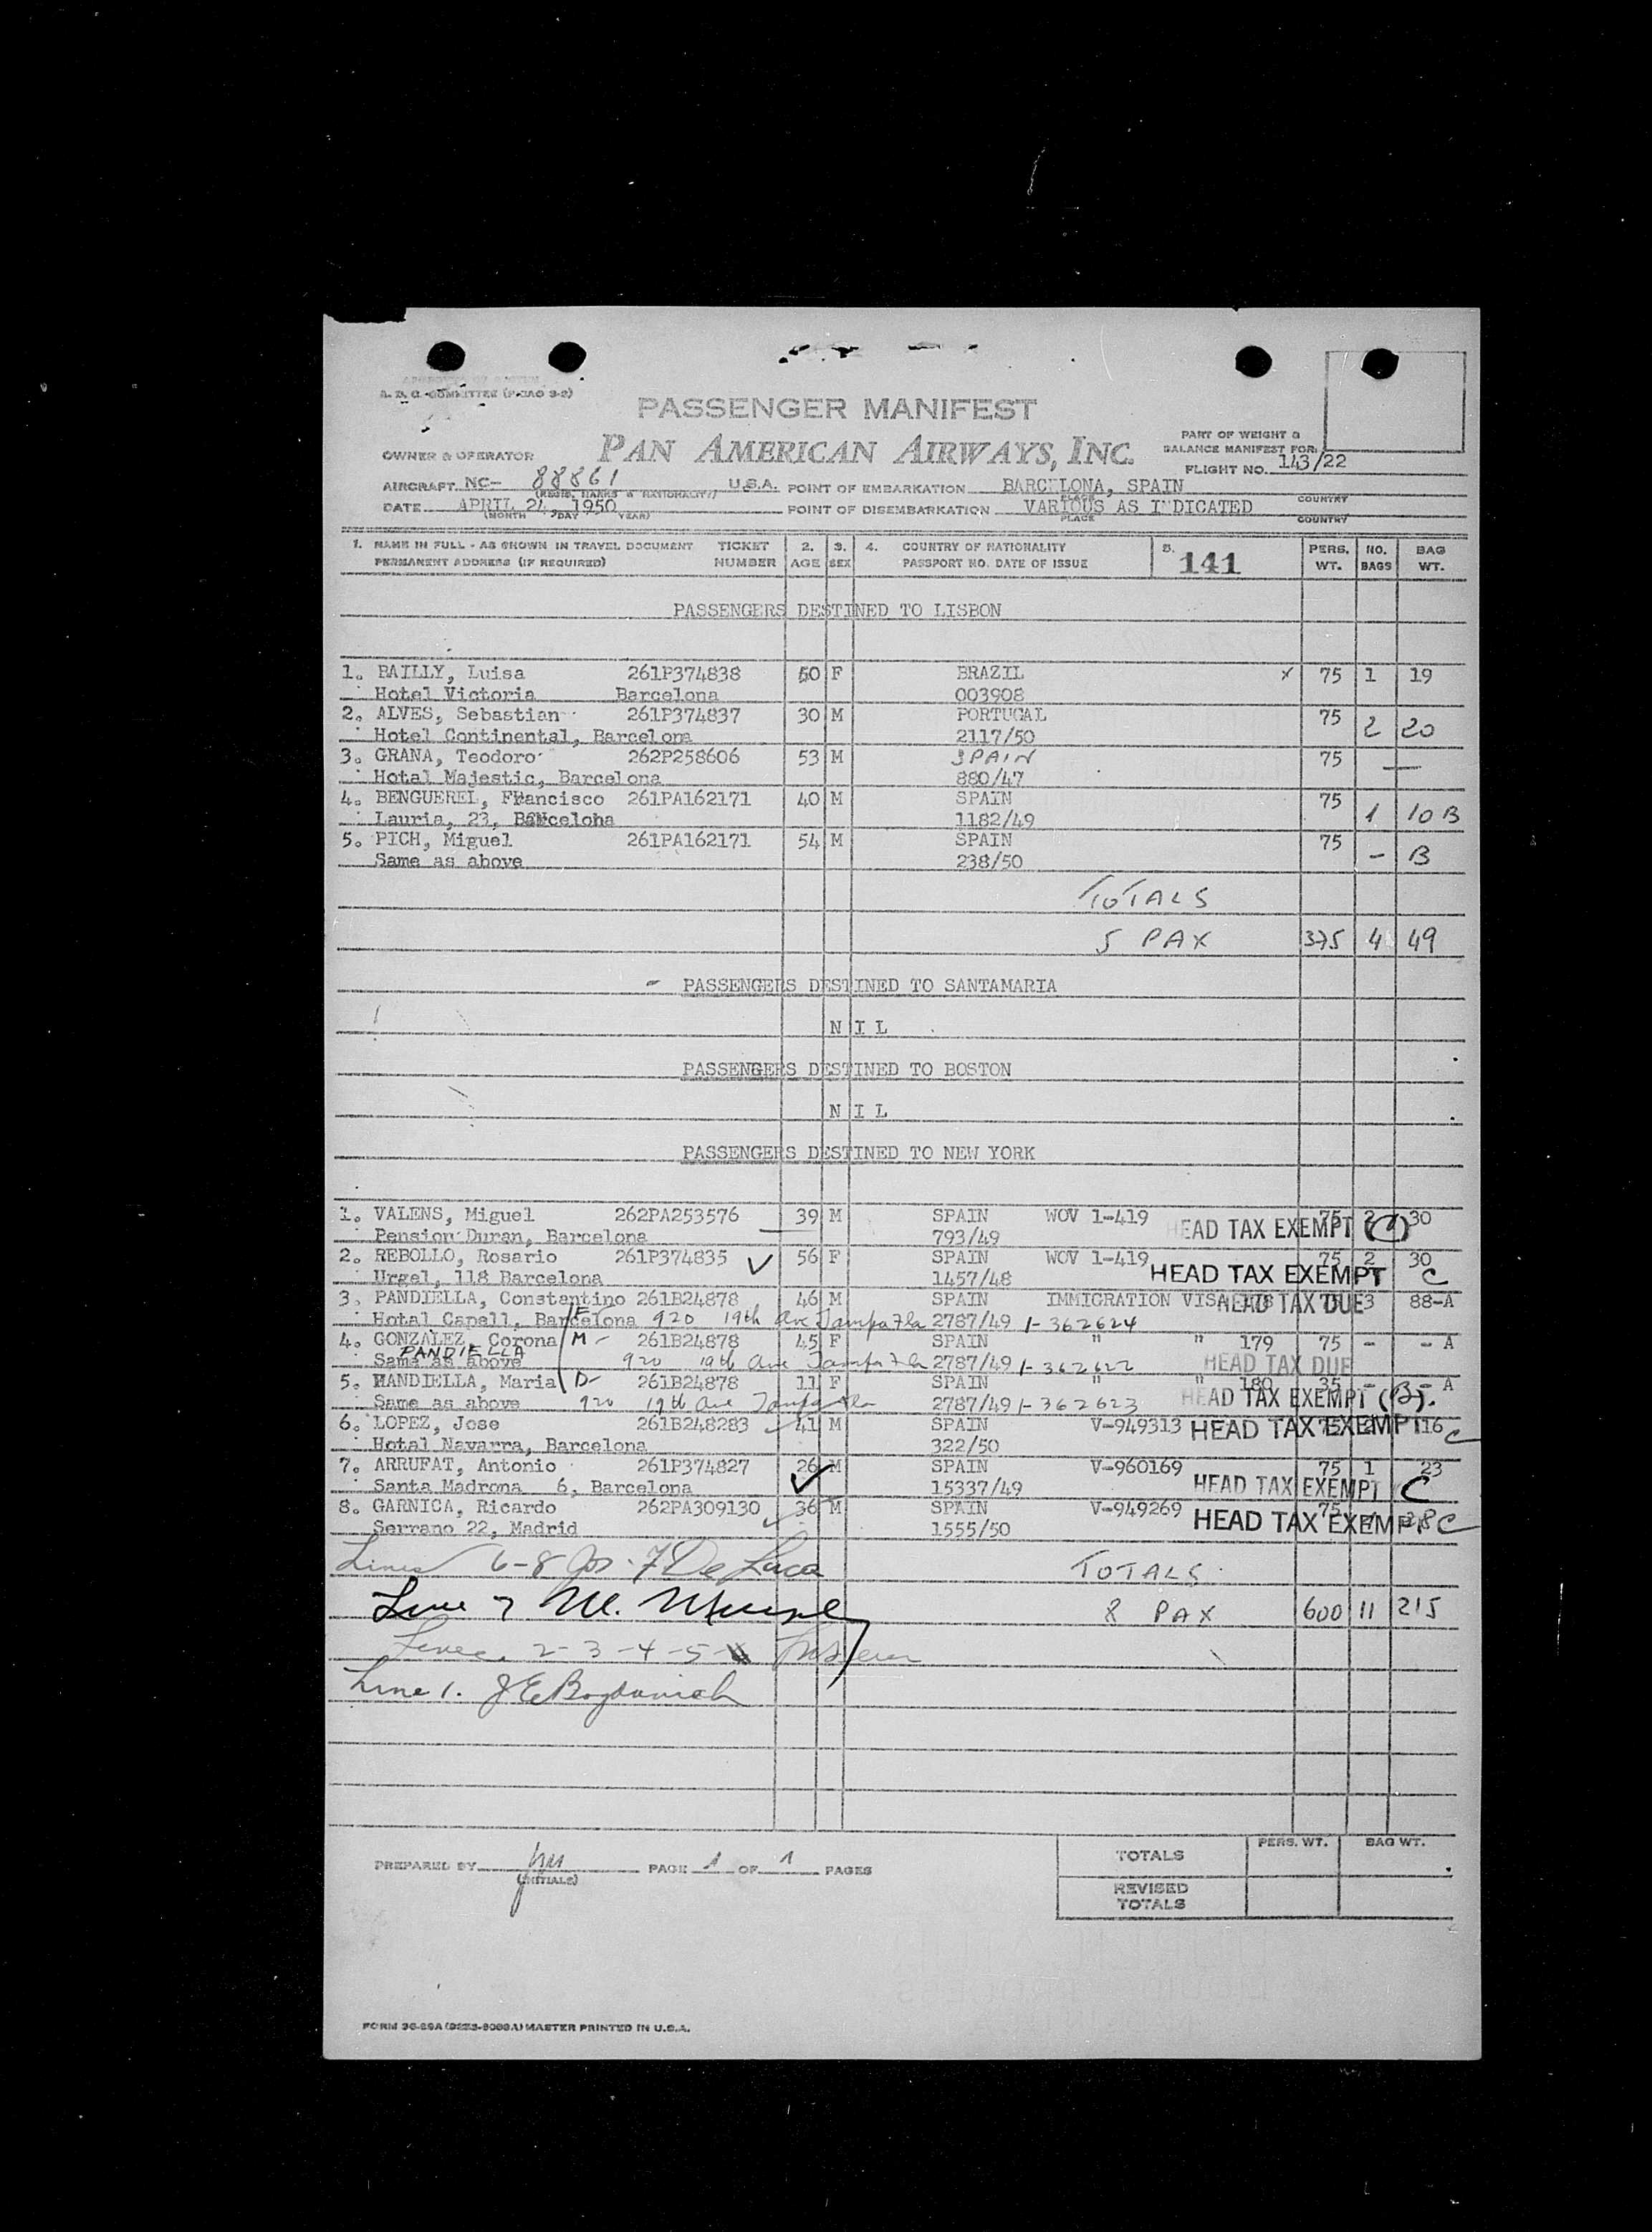 A. D. C. COMMITTEE (P-CAO 9-2)
PASSENGER MANIFEST
PAN AMERICAN AIRWAYS, INC.
PART OF WEIGHT &
BALANCE MANIFEST FOR
OWNER & OPERATOR
FLIGHT NO. 143/22
AIRCRAFT NC- 88861 U.S.A. POINT OF EMBARKATION BARCELONA, SPAIN
(REGIS. MARKS & NATIONALITY) PLACE COUNTRY
DATE APRIL 24, 1950 POINT OF DISEMBARKATION VARIOUS AS INDICATED
(MONTH DAY YEAR) PLACE COUNTRY
1. NAME IN FULL - AS SHOWN IN TRAVEL DOCUMENT TICKET 2. 3. 4. COUNTRY OF NATIONALITY 5. 141 PERS. NO. BAG
PERMANENT ADDRESS (IF REQUIRED) NUMBER AGE SEX PASSPORT NO. DATE OF ISSUE WT. BAGS WT.
PASSENGERS DESTINED TO LISBON
1. BAILLY, Luisa 261P374838 60 F BRAZIL x 75 1 19
Hotel Victoria Barcelona 003908
2. ALVES, Sebastian 261P374837 30 M PORTUGAL 75 2 20
Hotel Continental, Barcelona 2117/50
3. GRANA, Teodoro 262P258606 53 M SPAIN 75 —
Hotal Majestic, Barcelona 880/47
4. BENGUEREL, Francisco 261PA162171 40 M SPAIN 75 1 10 B
Lauria, 23, Barcelona 1182/49
5. PICH, Miguel 261PA162171 54 M SPAIN 75 - B
Same as above 238/50
TOTALS
5 PAX 375 4 49
- PASSENGERS DESTINED TO SANTAMARIA
N I L
PASSENGERS DESTINED TO BOSTON
N I L
PASSENGERS DESTINED TO NEW YORK
1. VALENS, Miguel 262PA253576 39 M SPAIN WOV 1-419 75 2 30
Pension Duran, Barcelona 793/49 HEAD TAX EXEMPT (C)
2. REBOLLO, Rosario 261P374835 56 F SPAIN WOV 1-419 75 2 30
Urgel, 118 Barcelona 1457/48 HEAD TAX EXEMPT C
3. PANDIELLA, Constantino 261B24878 46 M SPAIN IMMIGRATION VISA HEAD TAX DUE 3 88-A
Hotal Capell, Barcelona 920 19th Ave Tampa Fla 2787/49 1-362624
4. GONZALEZ, Corona M- 261B24878 45 F SPAIN " " 179 75 - - A
PANDIELLA
Same as above 920 19th Ave Tampa Fla 2787/49 1-362622 HEAD TAX DUE
5. MANDIELLA, Maria D- 261B24878 11 F SPAIN " " 180 35 - - A
Same as above 920 19th Ave Tampa Fla 2787/49 1-362623 HEAD TAX EXEMPT (B).
6. LOPEZ, Jose 261B248283 41 M SPAIN V-949313 HEAD TAX EXEMPT 16 C
Hotal Navarra, Barcelona 322/50
7. ARRUFAT, Antonio 261P374827 26 M SPAIN V-960169 75 1 23
Santa Madrona 6, Barcelona 15337/49 HEAD TAX EXEMPT C
8. GARNICA, Ricardo 262PA309130 36 M SPAIN V-949269 75
Serrano 22, Madrid 1555/50 HEAD TAX EXEMPT C
Lines 6-8 Jos. F De Luca TOTALS
Line 7 M. 8 PAX 600 11 215
Lines 2-3-4-5
Line 1. J E Bogdanich
PREPARED BY PAGE 1 OF 1 PAGES
(INITIALS)
PERS. WT. BAG WT.
TOTALS
REVISED
TOTALS
MASTER PRINTED IN U.S.A.